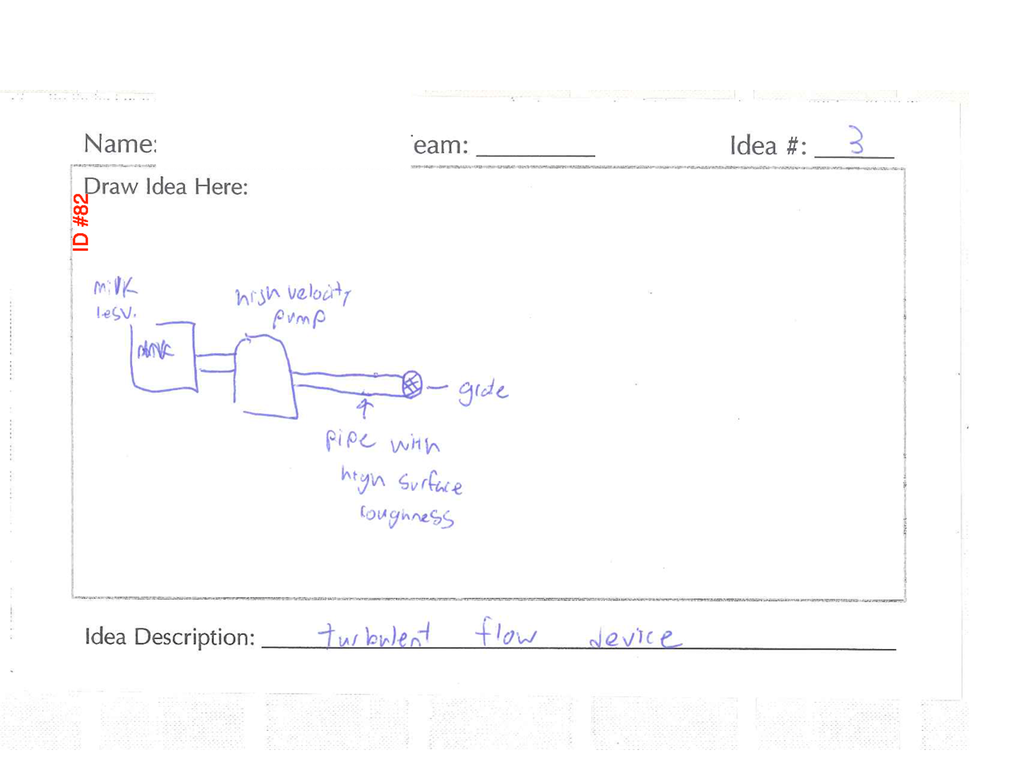 Name:
eam:
Idea #: 3
Draw Idea Here:
ID #82
milk
resv.
milk
high velocity
pump
gride
pipe with
high surface
roughness
Idea Description: turbulent flow device